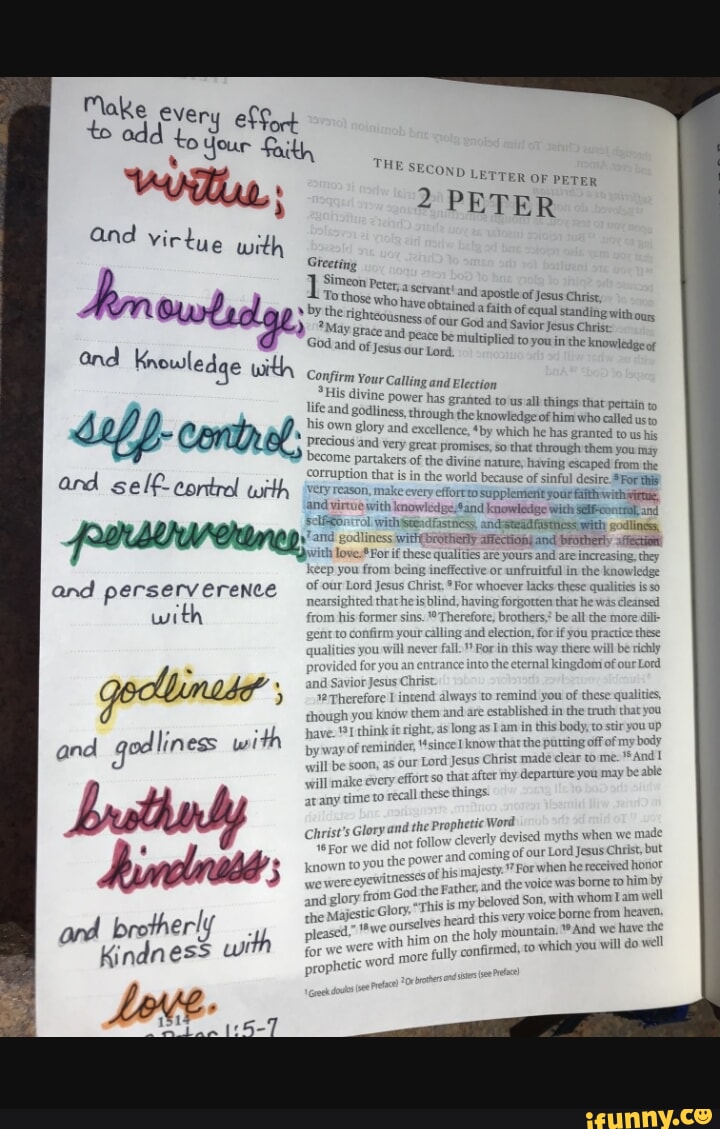 make every effort
to add to your faith
virtue;
and virtue with
knowledge;
and Knowledge with
self-control;
and self-control with
perserverence;
and perserverence
with
godliness;
and godliness with
brotherly
kindness;
and brotherly
Kindness with
love.
1514
1:5-7
THE SECOND LETTER OF PETER
2 PETER
Greeting
1 Simeon Peter, a servant¹ and apostle of Jesus Christ,
To those who have obtained a faith of equal standing with ours
by the righteousness of our God and Savior Jesus Christ:
²May grace and peace be multiplied to you in the knowledge of
God and of Jesus our Lord.
Confirm Your Calling and Election
³His divine power has granted to us all things that pertain to
life and godliness, through the knowledge of him who called us to
his own glory and excellence, ⁴by which he has granted to us his
precious and very great promises, so that through them you may
become partakers of the divine nature, having escaped from the
corruption that is in the world because of sinful desire. ⁵For this
very reason, make every effort to supplement your faith with virtue,
and virtue with knowledge, ⁶and knowledge with self-control, and
self-control with steadfastness, and steadfastness with godliness,
⁷and godliness with brotherly affection, and brotherly affection
with love. ⁸For if these qualities are yours and are increasing, they
keep you from being ineffective or unfruitful in the knowledge
of our Lord Jesus Christ. ⁹For whoever lacks these qualities is so
nearsighted that he is blind, having forgotten that he was cleansed
from his former sins. ¹⁰Therefore, brothers,² be all the more dili-
gent to confirm your calling and election, for if you practice these
qualities you will never fall. ¹¹For in this way there will be richly
provided for you an entrance into the eternal kingdom of our Lord
and Savior Jesus Christ.
¹²Therefore I intend always to remind you of these qualities,
though you know them and are established in the truth that you
have. ¹³I think it right, as long as I am in this body, to stir you up
by way of reminder, ¹⁴since I know that the putting off of my body
will be soon, as our Lord Jesus Christ made clear to me. ¹⁵And I
will make every effort so that after my departure you may be able
at any time to recall these things.
Christ's Glory and the Prophetic Word
¹⁶For we did not follow cleverly devised myths when we made
known to you the power and coming of our Lord Jesus Christ, but
we were eyewitnesses of his majesty. ¹⁷For when he received honor
and glory from God the Father, and the voice was borne to him by
the Majestic Glory, "This is my beloved Son, with whom I am well
pleased," ¹⁸we ourselves heard this very voice borne from heaven,
for we were with him on the holy mountain. ¹⁹And we have the
prophetic word more fully confirmed, to which you will do well
¹Greek doulos (see Preface) ²Or brothers and sisters (see Preface)
ifunny.co